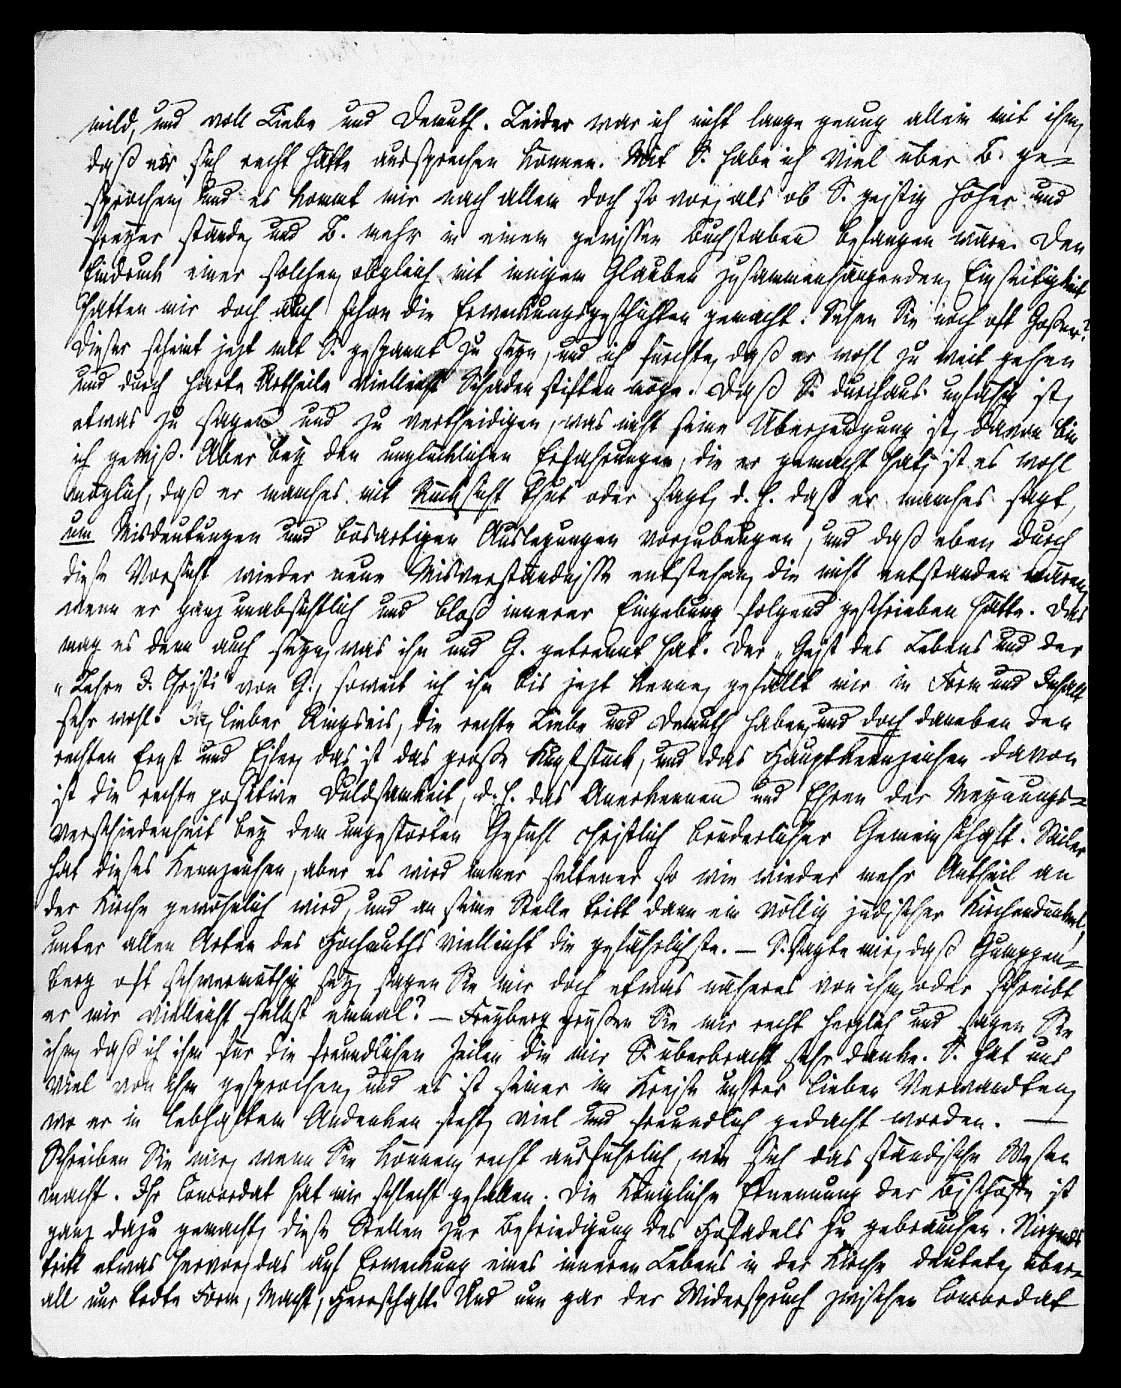 mild, und voll Liebe und Demuth. Leider war ich nicht lange genug allein mit ihm,
daß wir sich recht hätte aussprechen können. Mit S. habe ich viel über B. ge-
sprochen, und es kommt mir nach allem doch so vor, als ob S. geistig höher und
freyer stände, und B. mehr in einem gewissen Buchstaben befangen wäre. Den
Eindruck einer solchen, obgleich mit innigem Glauben zusammenhängenden, Einseitigkeit
hatten mir doch auch schon die Erweckungsgeschichten gemacht. Sehen Sie noch oft Goßner?
Dieser scheint jezt mit S. gespannt zu seyn, und ich fürchte, daß er wohl zu weit gehen
und durch harte Urtheile vielleicht Schaden stiften möge. Daß S. durchaus unfähig ist,
etwas zu sagen und zu vertheidigen, was nicht seine Überzeugung ist, davon bin
ich gewiß. Aber bey den unglücklichen Erfahrungen, die er gemacht hat, ist es wohl
möglich, daß er manches mit Rücksicht thut oder sagt, d. h. daß er manches sagt,
um Misdeutungen und bösartigen Auslegungen vorzubeugen, und daß eben durch
diese Vorsicht wieder neue Misverständnisse entstehen, die nicht entstanden wären,
wenn er ganz unabsichtlich und bloß innerer Eingebung folgend geschrieben hätte. Das
mag es denn auch seyn, was ihn und G. getrennt hat. Der „Geist des Lebens und der
„Lehre J. Christi“ von G., soweit ich ihn bis jezt kenne, gefällt mir in Form und Inhalt
sehr wohl. Ja, lieber Ringseis, die rechte Liebe und Demuth haben, und doch daneben den
rechten Ernst und Eifer, das ist das große Kunststück, und das Hauptkennzeichen davon
ist die rechte positive Duldsamkeit, d. h. das Anerkennen und Ehren der Meynungs-
verschiedenheit bey dem ungestörten Gefühl christlich brüderlicher Gemeinschaft. Sailer
hat dieses Kennzeichen, aber es wird immer seltener so wie wieder mehr Antheil an
der Kirche gewöhnlich wird, und an seine Stelle tritt dann ein völlig jüdischer Kirchendünkel,
unter allen Arten des Hochmuths vielleicht die gefährlichste. — S. sagte mir, daß Gumppen-
berg oft schwermüthig sey, sagen Sie mir doch etwas näheres von ihm, oder schreibt
er mir vielleicht selbst einmal? — Freyberg grüßen Sie mir recht herzlich und sagen Sie
ihm, daß ich ihm für die freundlichen Zeilen die mir S. überbracht sehr danke. S. hat uns
viel von ihm gesprochen, und es ist seiner im Kreise unsrer lieben Verwandten,
wo er in lebhaftem Andenken steht, viel und freundlich gedacht worden. —
Schreiben Sie mir, wenn Sie können, recht ausführlich, wie sich das ständische Wesen
macht. Ihr Concordat hat mir schlecht gefallen. Die königliche Ernennung der Bischöfe ist
ganz dazu gemacht, diese Stellen zur Befriedigung des Hofadels zu gebrauchen. Nirgends
tritt etwas hervor, das auf Erweckung eines inneren Lebens in der Kirche deutete, über-
all nur todte Form, Macht, Herrschaft. Und nun gar der Widerspruch zwischen Concordat